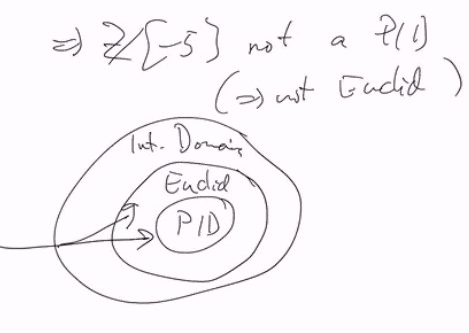 ⇒ ℤ[-5] not a PID
(⇒ not Euclid )
Int. Domain
Euclid
PID